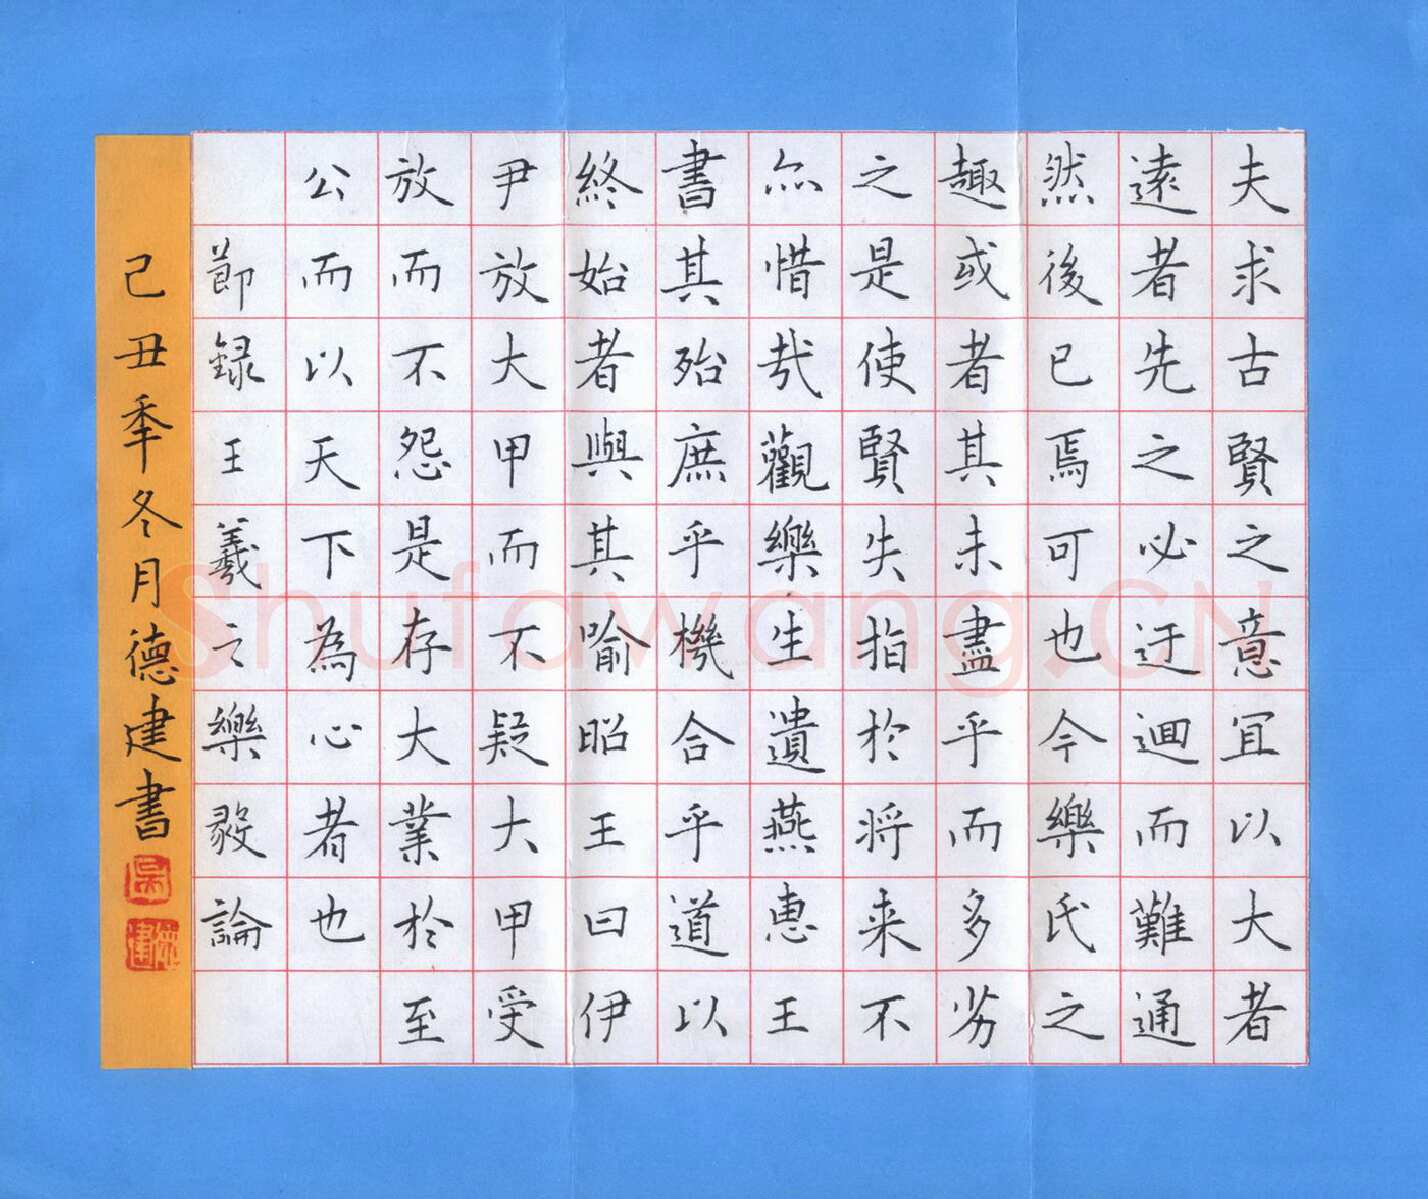 夫求古賢之意宜以大者
遠者先之必迂迴而難通
然後已焉可也今樂氏之
趣或者其未盡乎而多劣
之是使賢失指於将来不
亦惜哉觀樂生遺燕惠王
書其殆庶乎機合乎道以
終始者與其喻昭王曰伊
尹放大甲而不疑大甲受
放而不怨是存大業於至
公而以天下為心者也
節録王羲之樂毅論
己丑季冬月德建書
吴
德建
Shufawang.CN